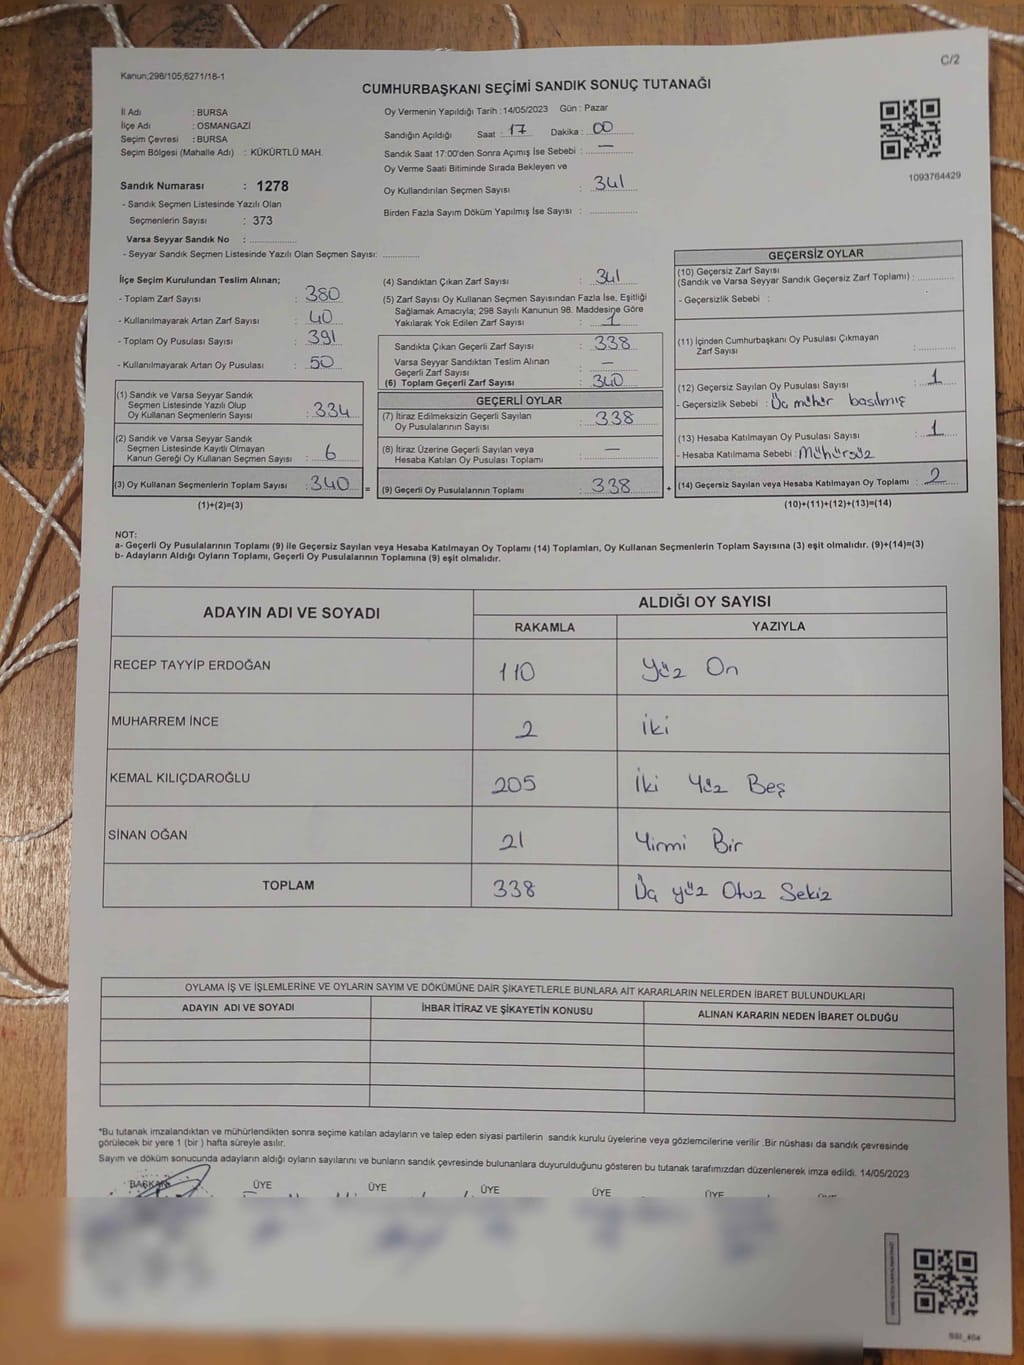 Kanun;298/105;6271/18-1
C/2
CUMHURBAŞKANI SEÇİMİ SANDIK SONUÇ TUTANAĞI
İl Adı : BURSA
İlçe Adı : OSMANGAZİ
Seçim Çevresi : BURSA
Seçim Bölgesi (Mahalle Adı) : KÜKÜRTLÜ MAH.
Sandık Numarası : 1278
- Sandık Seçmen Listesinde Yazılı Olan
Seçmenlerin Sayısı : 373
Varsa Seyyar Sandık No : ................
- Seyyar Sandık Seçmen Listesinde Yazılı Olan Seçmen Sayısı: ............
Oy Vermenin Yapıldığı Tarih : 14/05/2023 Gün : Pazar
Sandığın Açıldığı Saat : 17 Dakika : 00
Sandık Saat 17:00'den Sonra Açımış İse Sebebi : —
Oy Verme Saati Bitiminde Sırada Bekleyen ve
Oy Kullandırılan Seçmen Sayısı : 341
Birden Fazla Sayım Döküm Yapılmış İse Sayısı : ................
1093764429
İlçe Seçim Kurulundan Teslim Alınan;
- Toplam Zarf Sayısı : 380
- Kullanılmayarak Artan Zarf Sayısı : 40
- Toplam Oy Pusulası Sayısı : 391
- Kullanılmayarak Artan Oy Pusulası : 50
(1) Sandık ve Varsa Seyyar Sandık
Seçmen Listesinde Yazılı Olup
Oy Kullanan Seçmenlerin Sayısı : 334
(2) Sandık ve Varsa Seyyar Sandık
Seçmen Listesinde Kayıtlı Olmayan
Kanun Gereği Oy Kullanan Seçmen Sayısı : 6
(3) Oy Kullanan Seçmenlerin Toplam Sayısı : 340 =
(1)+(2)=(3)
(4) Sandıktan Çıkan Zarf Sayısı : 341
(5) Zarf Sayısı Oy Kullanan Seçmen Sayısından Fazla İse, Eşitliği
Sağlamak Amacıyla; 298 Sayılı Kanunun 98. Maddesine Göre
Yakılarak Yok Edilen Zarf Sayısı : 1
Sandıkta Çıkan Geçerli Zarf Sayısı : 338
Varsa Seyyar Sandıktan Teslim Alınan
Geçerli Zarf Sayısı : —
(6) Toplam Geçerli Zarf Sayısı : 340
GEÇERLİ OYLAR
(7) İtiraz Edilmeksizin Geçerli Sayılan
Oy Pusulalarının Sayısı : 338
(8) İtiraz Üzerine Geçerli Sayılan veya
Hesaba Katılan Oy Pusulası Toplamı : —
(9) Geçerli Oy Pusulalarının Toplamı : 338 +
GEÇERSİZ OYLAR
(10) Geçersiz Zarf Sayısı
(Sandık ve Varsa Seyyar Sandık Geçersiz Zarf Toplamı) : ............
- Geçersizlik Sebebi :
(11) İçinden Cumhurbaşkanı Oy Pusulası Çıkmayan
Zarf Sayısı : ............
(12) Geçersiz Sayılan Oy Pusulası Sayısı : 1
- Geçersizlik Sebebi : Üç mühür basılmış
(13) Hesaba Katılmayan Oy Pusulası Sayısı : 1
- Hesaba Katılmama Sebebi : Mühürsüz
(14) Geçersiz Sayılan veya Hesaba Katılmayan Oy Toplamı : 2
(10)+(11)+(12)+(13)=(14)
NOT:
a- Geçerli Oy Pusulalarının Toplamı (9) ile Geçersiz Sayılan veya Hesaba Katılmayan Oy Toplamı (14) Toplamları, Oy Kullanan Seçmenlerin Toplam Sayısına (3) eşit olmalıdır. (9)+(14)=(3)
b- Adayların Aldığı Oyların Toplamı, Geçerli Oy Pusulalarının Toplamına (9) eşit olmalıdır.
ADAYIN ADI VE SOYADI
ALDIĞI OY SAYISI
RAKAMLA YAZIYLA
RECEP TAYYİP ERDOĞAN 110 Yüz On
MUHARREM İNCE 2 İki
KEMAL KILIÇDAROĞLU 205 İki Yüz Beş
SİNAN OĞAN 21 Yirmi Bir
TOPLAM 338 Üç yüz Otuz Sekiz
OYLAMA İŞ VE İŞLEMLERİNE VE OYLARIN SAYIM VE DÖKÜMÜNE DAİR ŞİKAYETLERLE BUNLARA AİT KARARLARIN NELERDEN İBARET BULUNDUKLARI
ADAYIN ADI VE SOYADI İHBAR İTİRAZ VE ŞİKAYETİN KONUSU ALINAN KARARIN NEDEN İBARET OLDUĞU
*Bu tutanak imzalandıktan ve mühürlendikten sonra seçime katılan adayların ve talep eden siyasi partilerin sandık kurulu üyelerine veya gözlemcilerine verilir .Bir nüshası da sandık çevresinde
görülecek bir yere 1 (bir ) hafta süreyle asılır.
Sayım ve döküm sonucunda adayların aldığı oyların sayılarını ve bunların sandık çevresinde bulunanlara duyurulduğunu gösteren bu tutanak tarafımızdan düzenlenerek imza edildi. 14/05/2023
BAŞKAN ÜYE ÜYE ÜYE ÜYE ÜYE